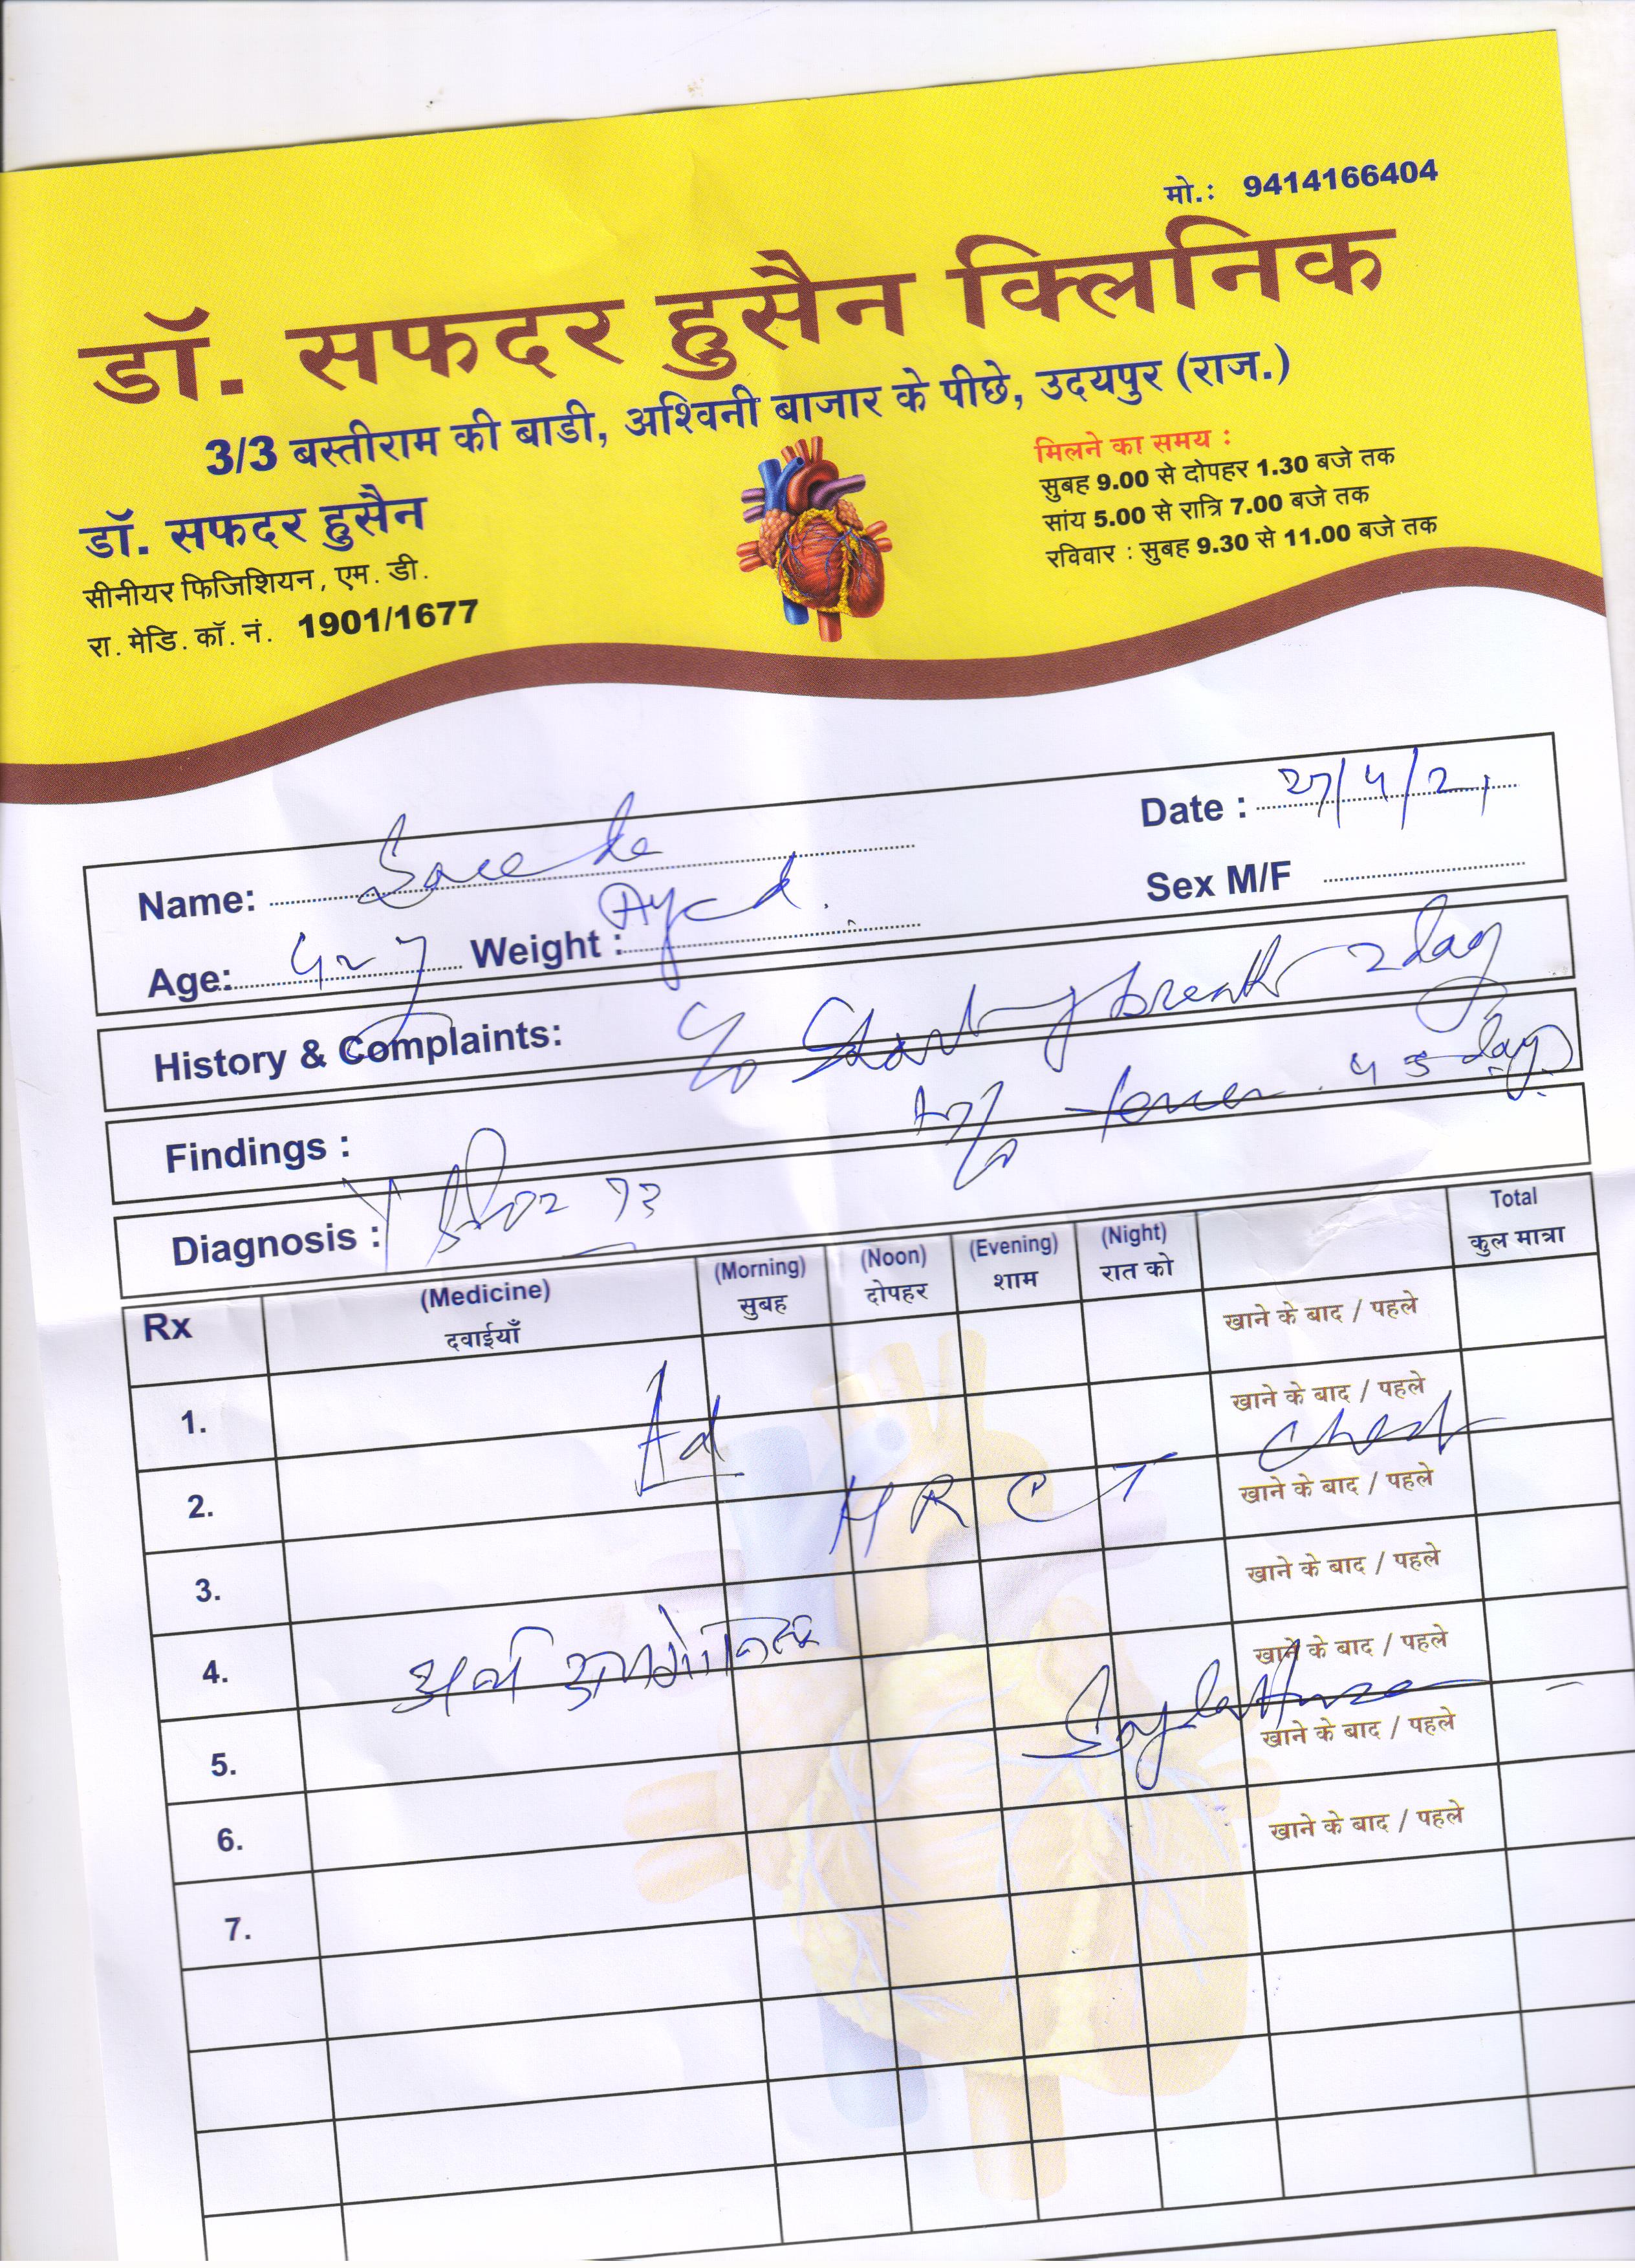 मो.: 9414166404
डॉ. सफदर हुसैन क्लिनिक
3/3 बस्तीराम की बाडी, अश्विनी बाजार के पीछे, उदयपुर (राज.)
डॉ. सफदर हुसैन
सीनीयर फिजिशियन, एम. डी.
रा. मेडि. कॉ. नं. 1901/1677
मिलने का समय :
सुबह 9.00 से दोपहर 1.30 बजे तक
सांय 5.00 से रात्रि 7.00 बजे तक
रविवार : सुबह 9.30 से 11.00 बजे तक
Date : 27/4/21
Name:
Sex M/F
Age: Weight :
History & Complaints: C/o breath 2 day
fever 4 5 days
Findings :
Diagnosis :
Rx (Medicine) (Morning) (Noon) (Evening) (Night) Total
दवाईयाँ सुबह दोपहर शाम रात को कुल मात्रा
खाने के बाद / पहले
1. खाने के बाद / पहले
Ad HRCT Chest
2. खाने के बाद / पहले
3. खाने के बाद / पहले
4. खाने के बाद / पहले
5. खाने के बाद / पहले
6. खाने के बाद / पहले
7.